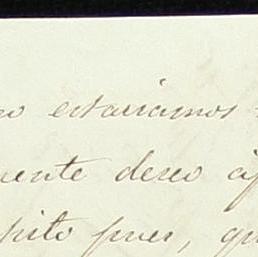 estariamos
mente deseo
pito pues, qu